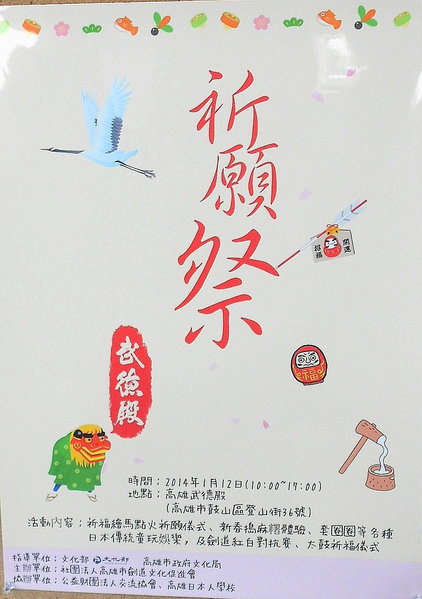 祈願祭
招福
開運
福
武德殿
時間：2014年1月12日(10:00~17:00)
地點：高雄武德殿
(高雄市鼓山區登山街36號)
活動內容：祈福繪馬點火祈願儀式、新春搗麻糬體驗、套圈圈等各種
日本傳統童玩娛樂，及劍道紅白對抗賽、太鼓祈福儀式
指導單位：文化部 文化部 高雄市政府文化局
主辦單位：社團法人高雄市劍道文化促進會
協辦單位：公益財團法人交流協會、高雄日本人學校